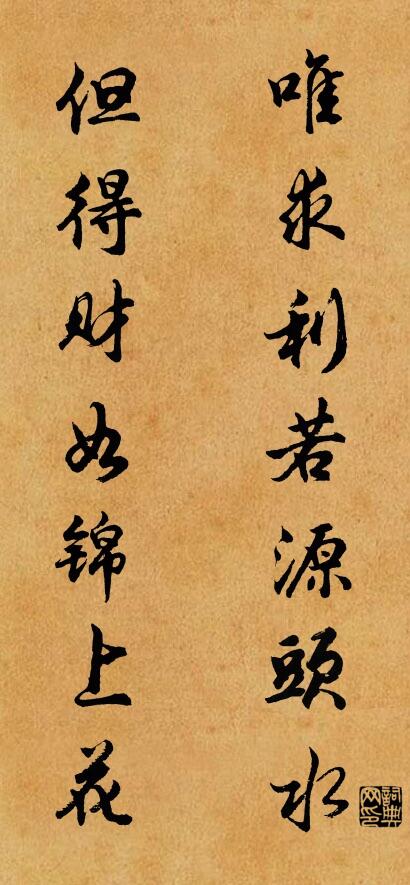 唯求利若源頭水
但得财如锦上花
詞典网印